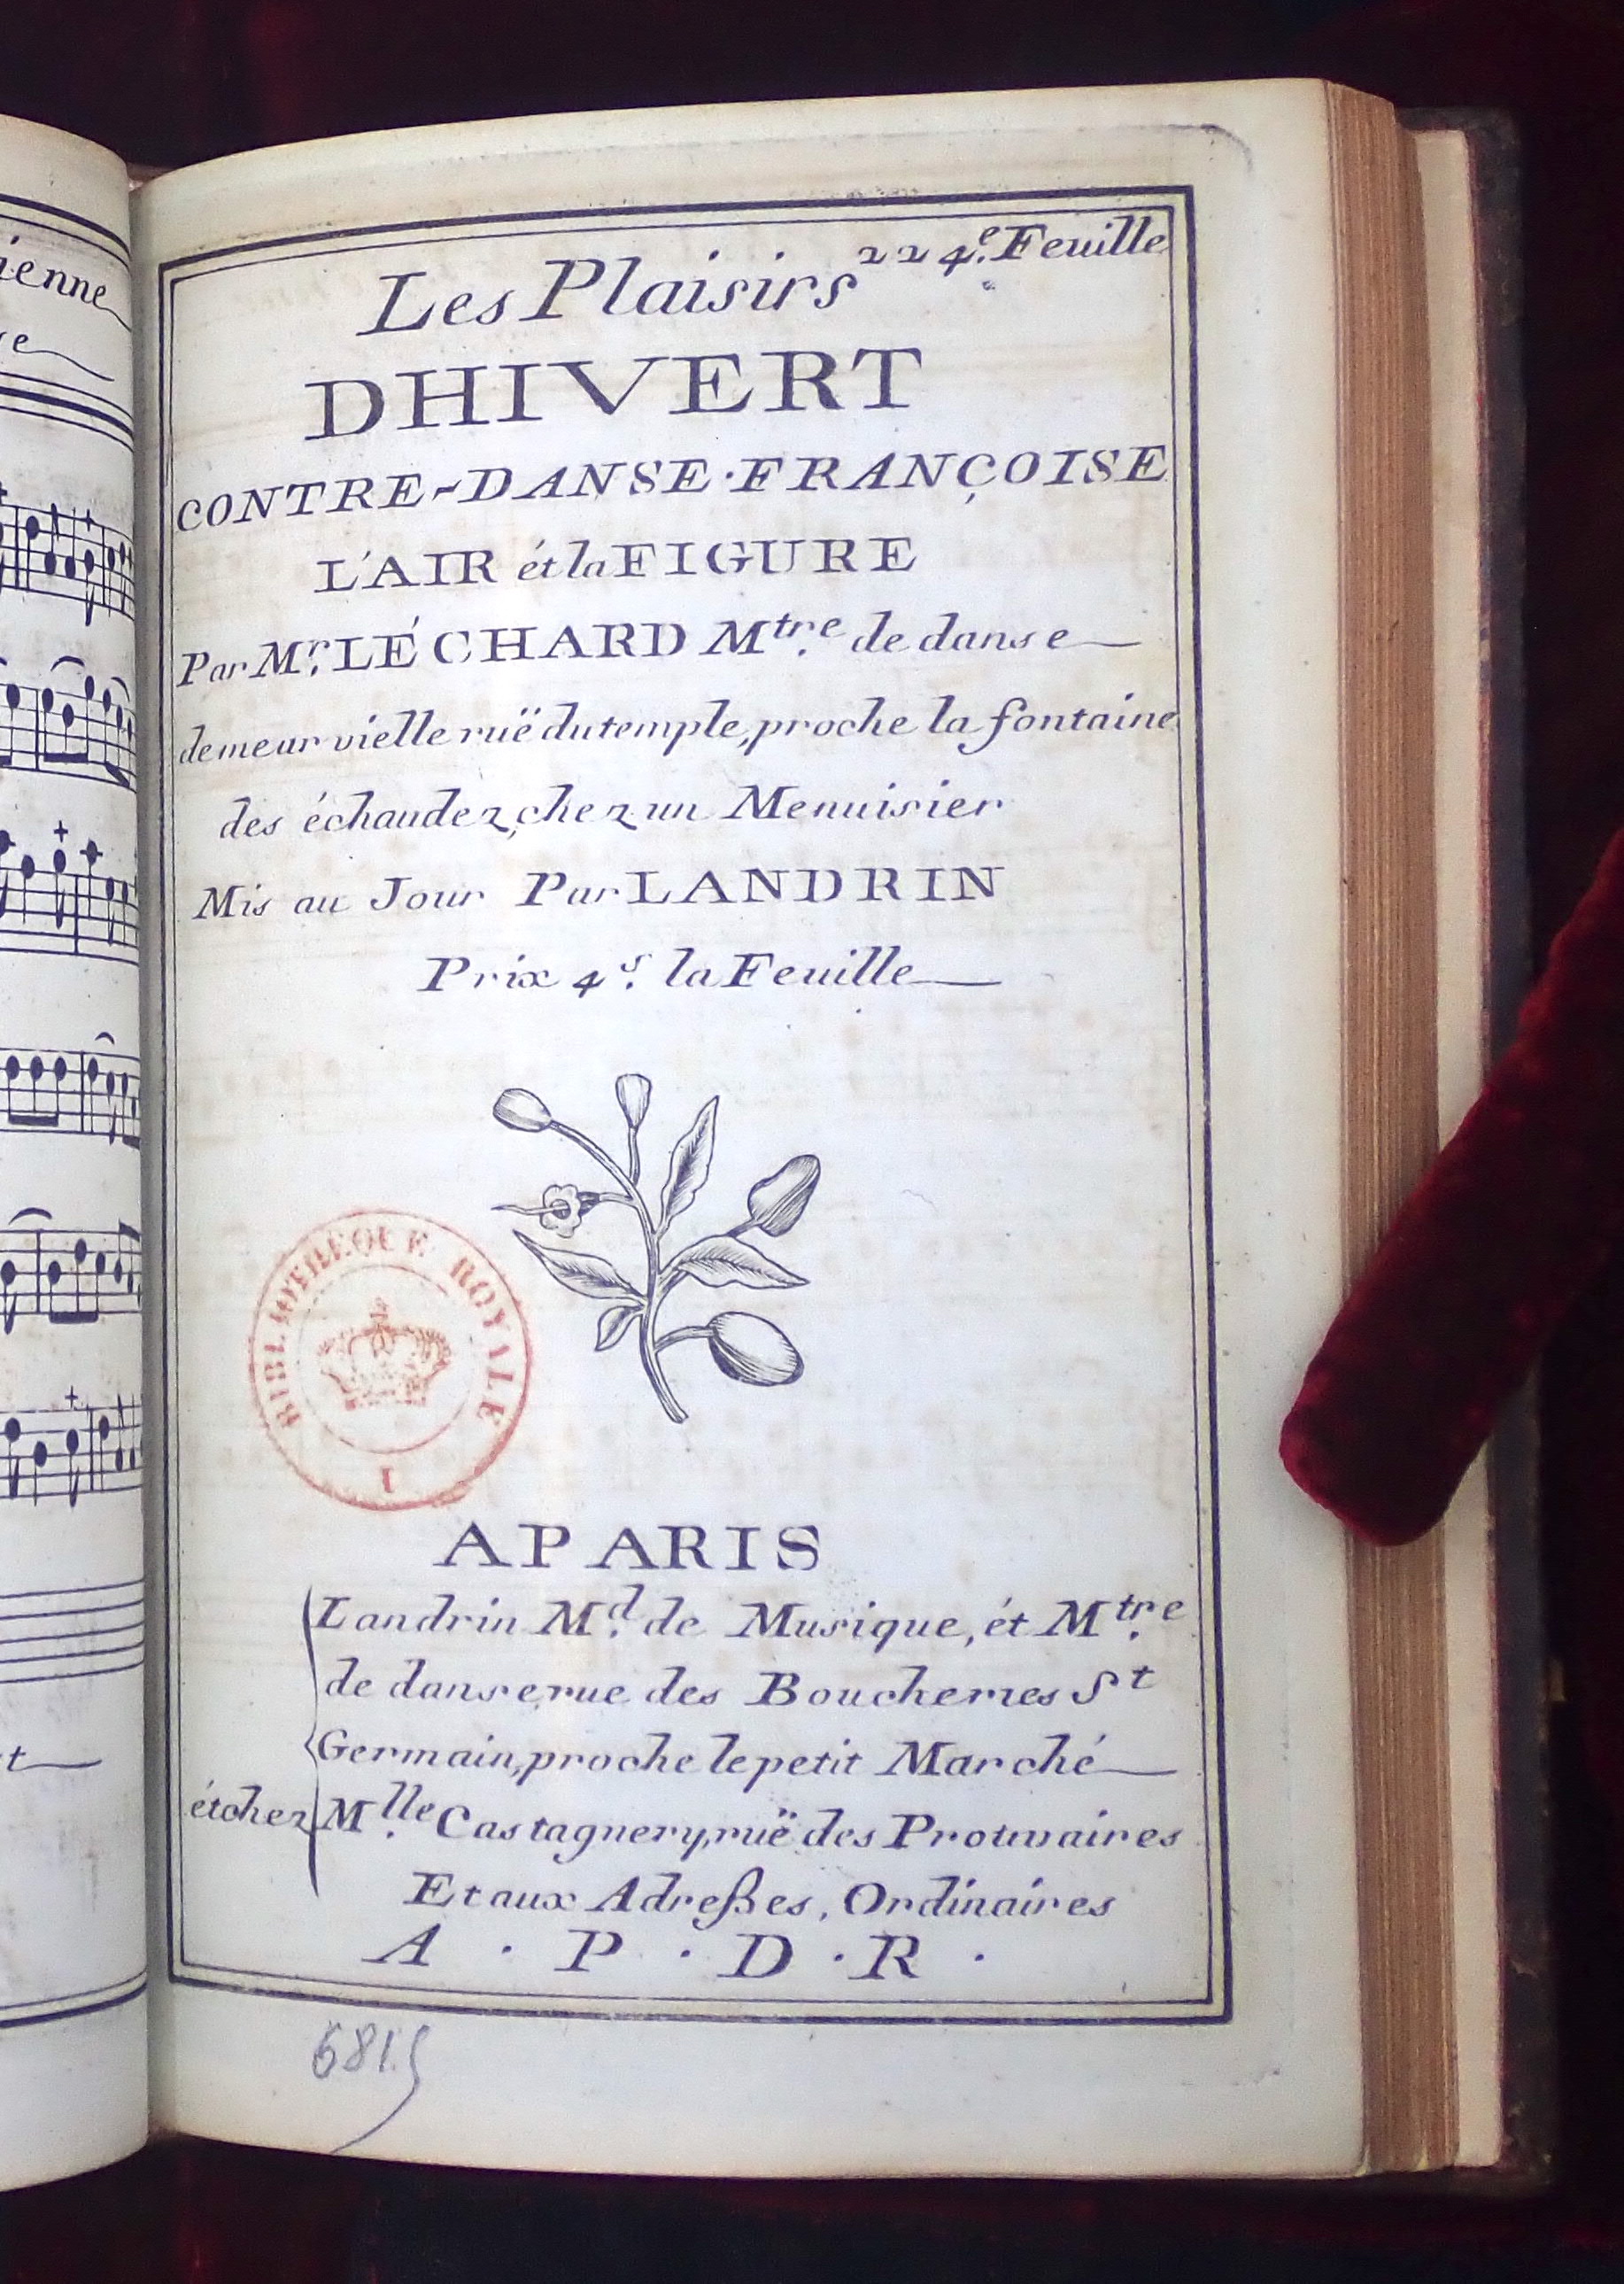 ienne
224.e Feuille
Les Plaisirs
DHIVERT
CONTRE-DANSE·FRANÇOISE
L'AIR ét la FIGURE
Par Mr. LÉCHARD Mtre. de danse
demeur vielle ruë du temple, proche la fontaine
des échaudez, chez un Menuisier
Mis au Jour Par LANDRIN
Prix 4s. la Feuille
BIBLIOTHEQUE ROYALE
I
A PARIS
Landrin Md. de Musique, ét Mtre.
de danse, rue des Boucheries St
Germain, proche le petit Marché
ét chez Mlle. Castagnery, ruë des Prouvaires
Et aux Adreßes, Ordinaires
A · P · D · R ·
681.